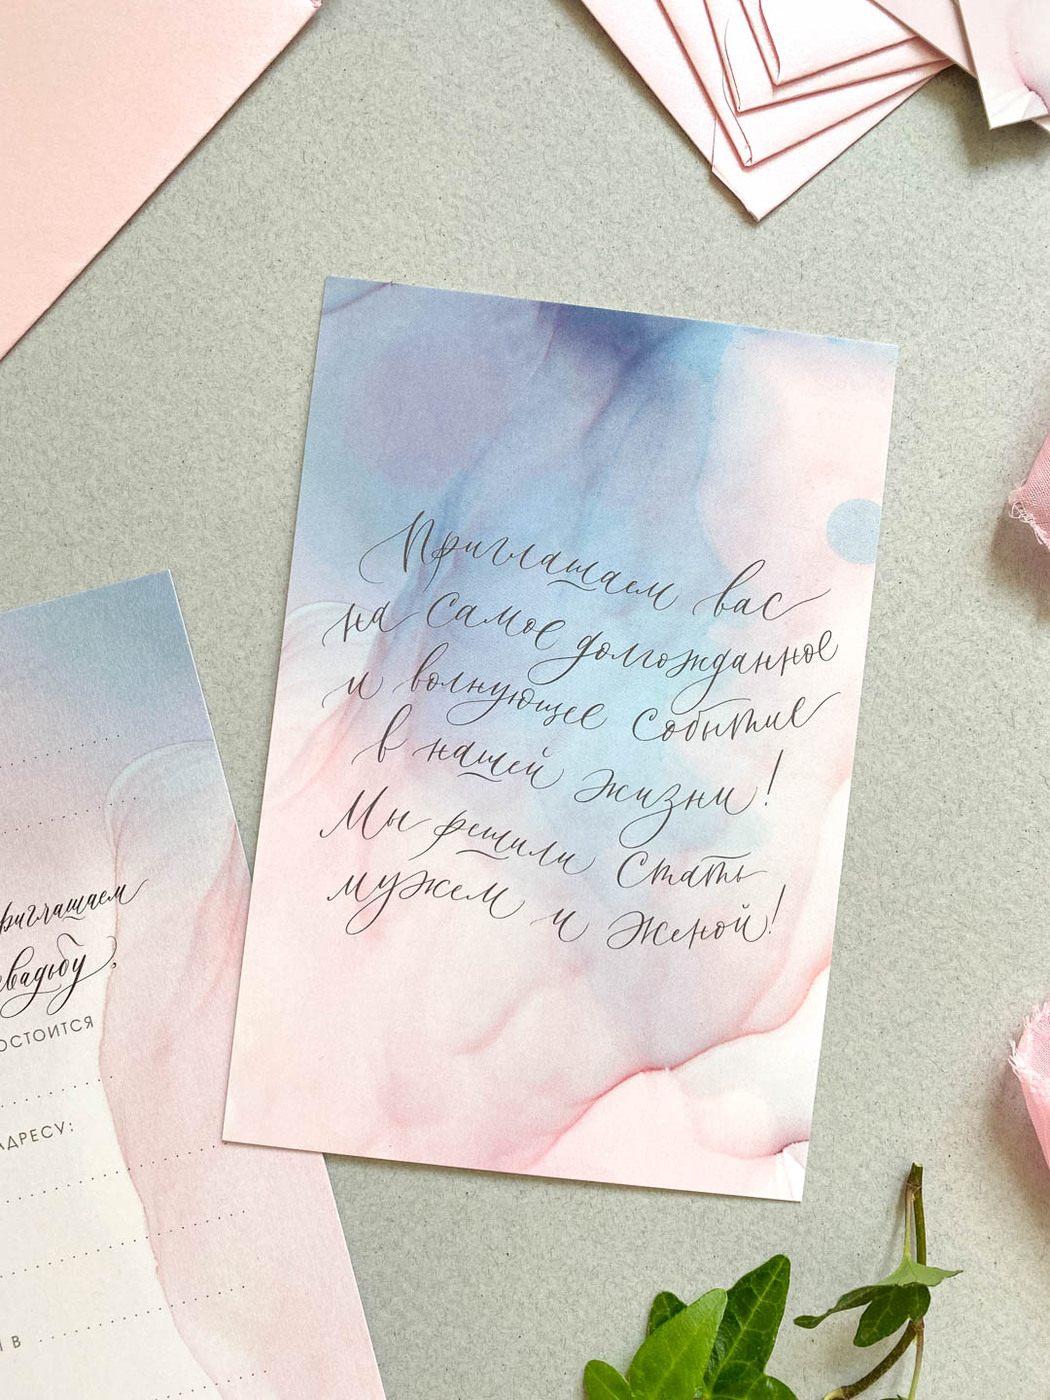 Приглашаем вас
на самое долгожданное
и волнующее событие
в нашей жизни!
Мы решили стать
мужем и женой!
приглашаем
свадьбу,
состоится
АДРЕСУ:
В